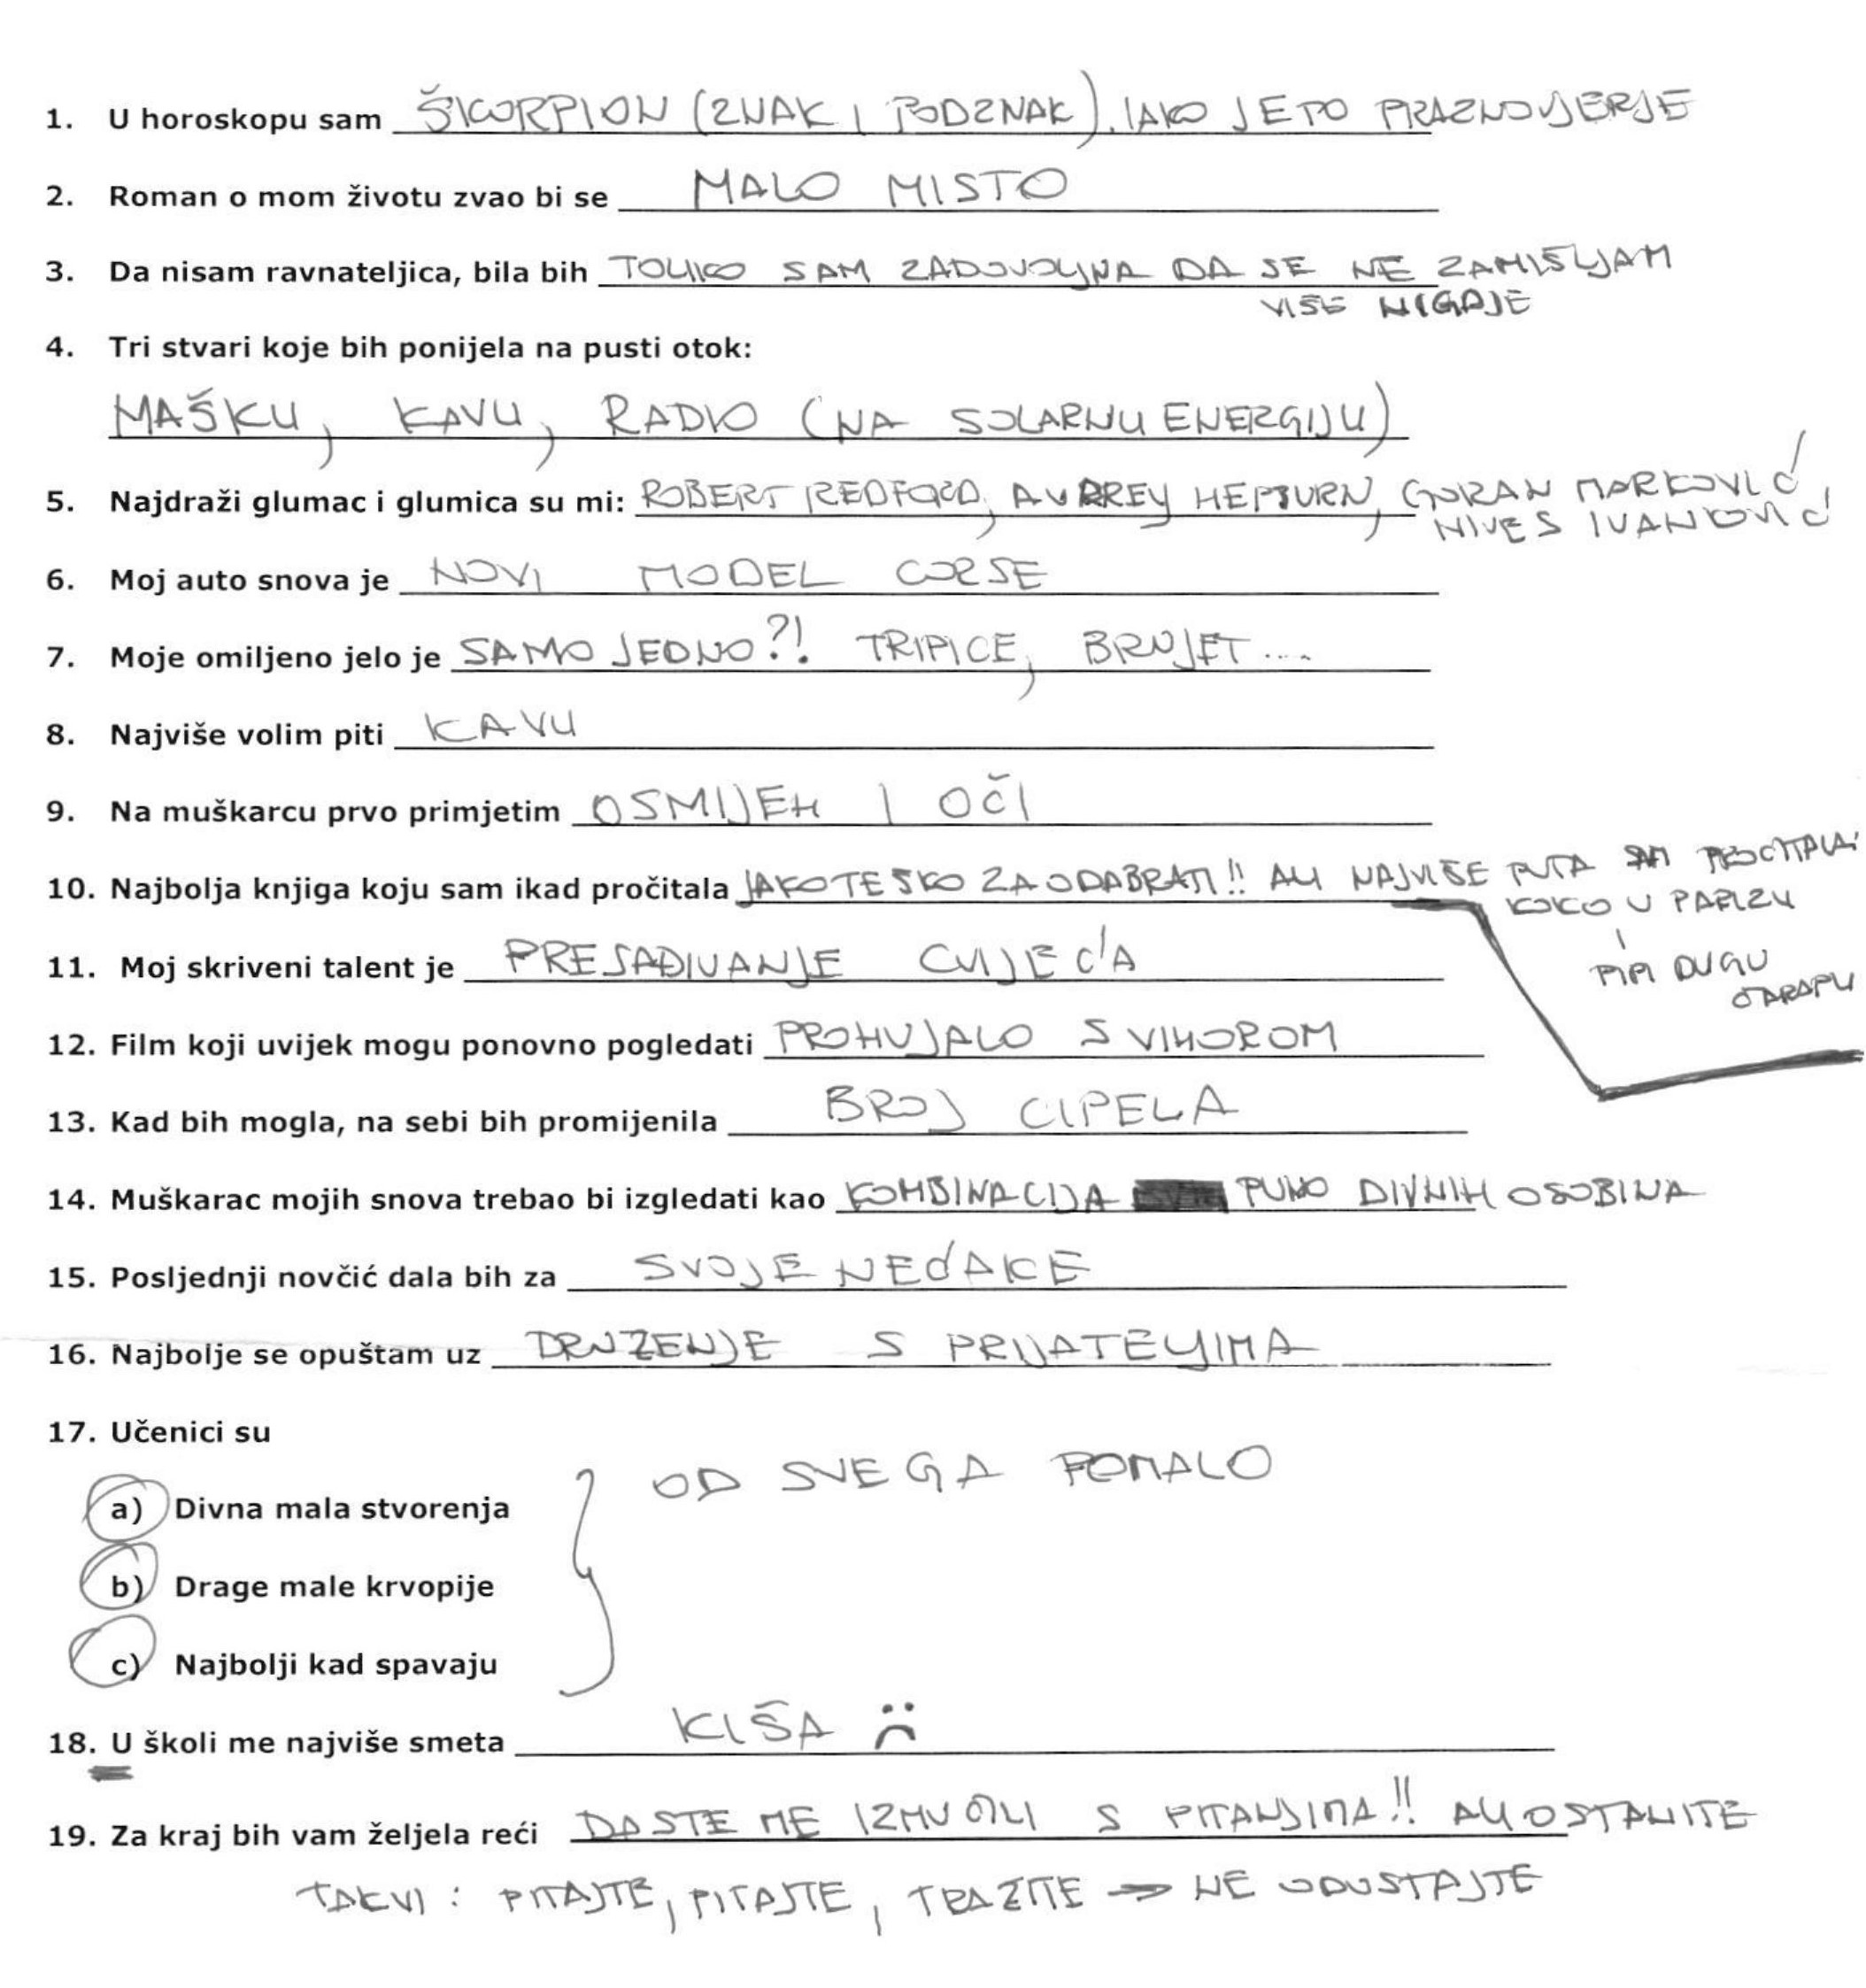 1. U horoskopu sam ŠKORPION (ZNAK I PODZNAK), IAKO JE TO PRAZNOVJERJE
2. Roman o mom životu zvao bi se MALO MISTO
3. Da nisam ravnateljica, bila bih TOLIKO SAM ZADOVOLJNA DA SE NE ZAMIŠLJAM
VIŠE NIGDJE
4. Tri stvari koje bih ponijela na pusti otok:
MAŠKU, KAVU, RADIO (NA SOLARNU ENERGIJU)
5. Najdraži glumac i glumica su mi: ROBERT REDFORD, AUDREY HEPBURN, GORAN MARKOVIĆ,
NIVES IVANKOVIĆ
6. Moj auto snova je NOVI MODEL CORSE
7. Moje omiljeno jelo je SAMO JEDNO?! TRIPICE, BRUJET...
8. Najviše volim piti KAVU
9. Na muškarcu prvo primjetim OSMIJEH I OČI
10. Najbolja knjiga koju sam ikad pročitala JAKO TEŠKO ZA ODABRATI!! ALI NAJVIŠE PUTA SAM PROČITALA:
KOKO U PARIZU
I
PIPI DUGU
ČARAPU
11. Moj skriveni talent je PRESAĐIVANJE CVIJEĆA
12. Film koji uvijek mogu ponovno pogledati PROHUJALO S VIHOROM
13. Kad bih mogla, na sebi bih promijenila BROJ CIPELA
14. Muškarac mojih snova trebao bi izgledati kao KOMBINACIJA PUNO DIVNIH OSOBINA
15. Posljednji novčić dala bih za SVOJE NEĆAKE
16. Najbolje se opuštam uz DRUŽENJE S PRIJATELJIMA
17. Učenici su
OD SVEGA POMALO
a) Divna mala stvorenja
b) Drage male krvopije
c) Najbolji kad spavaju
18. U školi me najviše smeta KIŠA
19. Za kraj bih vam željela reći DA STE ME IZMUČILI S PITANJIMA!! ALI OSTANITE
TAKVI: PITAJTE, PITAJTE, TRAŽITE → NE ODUSTAJTE